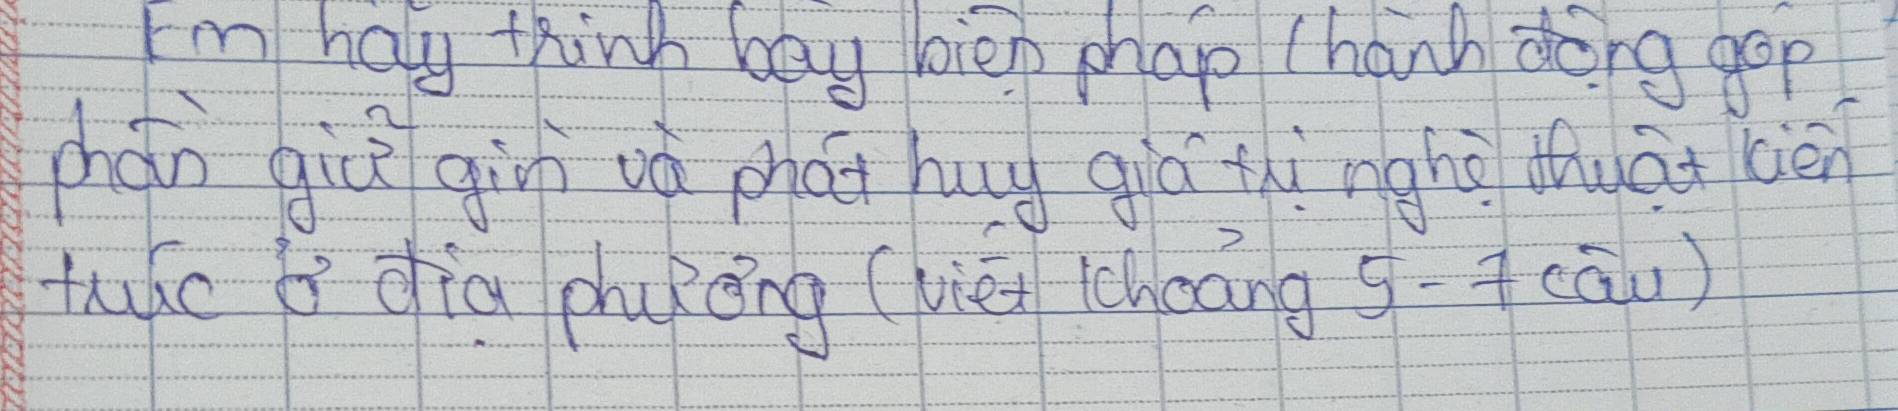 Em hãy trình bày biện pháp / hành động góp
phần giữ gìn và phát huy giá trị nghệ thuật kiến
trúc ở địa phương (viết khoảng 5 - 7 câu)